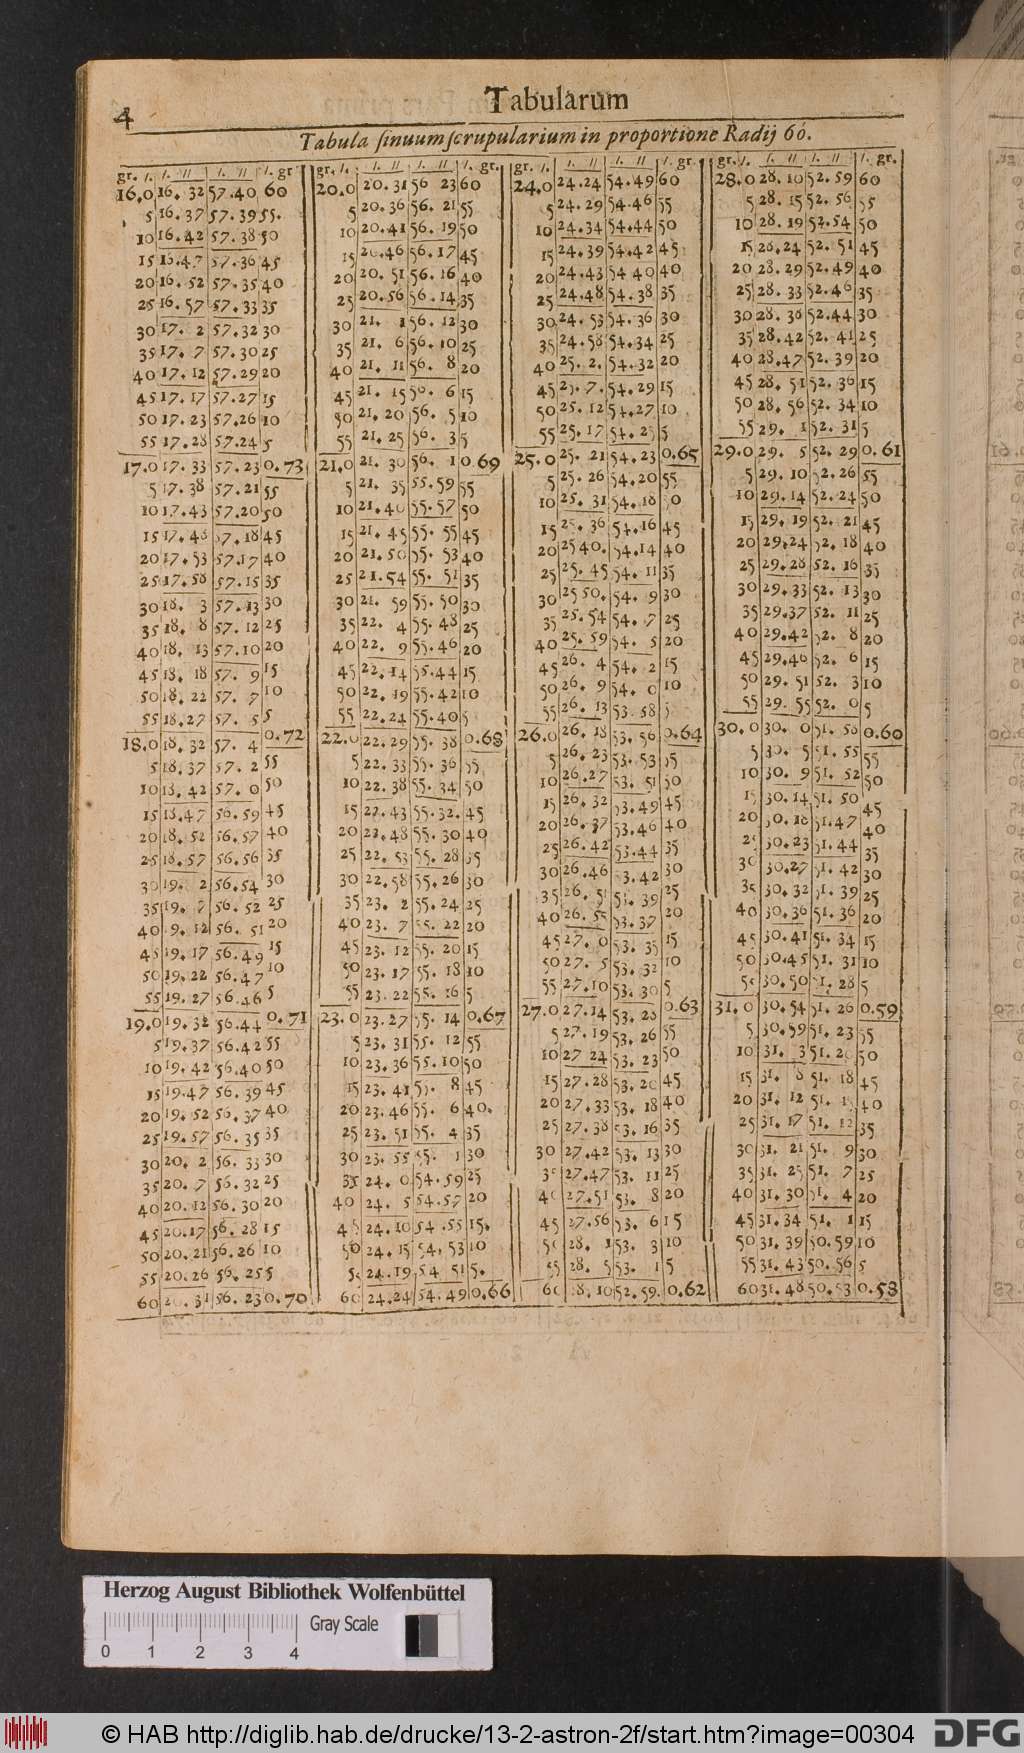 4 Tabularum
Tabula sinuum scrupularium in proportione Radij 60.
gr. ı. ı. ıı ı. ıı ı. gr gr. ı. ı. ıı ı. ıı ı. gr. gr. ı. ı. ıı ı. ıı ı. gr. gr. ı. ı. ıı ı. ıı ı. gr.
16.0 16. 32 57.40 60 20.0 20.31 56 23 60 24.0 24.24 54.49 60 28.0 28.10 52.59 60
5 16.37 57.39 55. 5 20.36 56. 21 55 5 24.29 54.46 55 5 28.15 52.56 55
10 16.42 57.38 50 10 20.41 56. 19 50 10 24.34 54.44 50 10 28.19 52.54 50
15 16.47 57.36 45 15 20.46 56.17 45 15 24.39 54.42 45 15 28.24 52. 51 45
20 16.52 57.35 40 20 20. 51 56.16 40 20 24.43 54 40 40 20 28.29 52.49 40
25 16.57 57.33 35 25 20.56 56.14 35 25 24.48 54.38 35 25 28.33 52.46 35
30 17. 2 57.32 30 30 21. 1 56.12 30 30 24. 53 54.36 30 30 28.38 52.44 30
35 17. 7 57.30 25 35 21. 6 56.10 25 35 24.58 54.34 25 35 28.42 52.41 25
40 17.12 57.29 20 40 21. 11 56. 8 20 40 25. 2. 54.32 20 40 28.47 52.39 20
45 17.17 57.27 15 45 21. 15 56. 6 15 45 25. 7. 54.29 15 45 28. 51 52.36 15
50 17.23 57.26 10 50 21.20 56. 5 10 50 25.12 54.27 10 50 28.56 52.34 10
55 17.28 57.24 5 55 21.25 56. 3 5 55 25.17 54.25 5 55 29. 1 52.31 5
17.0 17. 33 57.23 0.73 21.0 21. 30 56. 1 0.69 25.0 25. 21 54.23 0.65 29.0 29. 5 52.29 0.61
5 17.38 57.21 55 5 21. 35 55.59 55 5 25. 26 54.20 55 5 29.10 52.26 55
10 17.43 57.20 50 10 21.40 55.57 50 10 25. 31 54.18 50 10 29.14 52.24 50
15 17.48 57.18 45 15 21.45 55. 55 45 15 25.36 54.16 45 15 29.19 52.21 45
20 17.53 57.17 40 20 21.50 55. 53 40 20 25 40. 54.14 40 20 29.24 52.18 40
25 17.58 57.15 35 25 21.54 55. 51 35 25 25.45 54. 11 35 25 29.28 52.16 35
30 18. 3 57.13 30 30 21. 59 55.50 30 30 25 50. 54. 9 30 30 29.33 52.13 30
35 18. 8 57.12 25 35 22. 4 55.48 25 35 25.54 54. 7 25 35 29.37 52. 11 25
40 18. 13 57.10 20 40 22. 9 55.46 20 40 25.59 54. 5 20 40 29.42 52. 8 20
45 18. 18 57. 9 15 45 22.14 55.44 15 45 26. 4 54. 2 15 45 29.46 52. 6 15
50 18.22 57. 7 10 50 22.19 55.42 10 50 26. 9 54. 0 10 50 29.51 52. 3 10
55 18.27 57. 5 5 55 22.24 55.40 5 55 26. 13 53.58 5 55 29.55 52. 0 5
18.0 18. 32 57. 4 0.72 22.0 22.29 55.38 0.68 26.0 26.18 53.56 0.64 30.0 30. 0 51.58 0.60
5 18.37 57. 2 55 5 22.33 55.36 55 5 26.23 53.53 55 5 30. 5 51.55 55
10 18.42 57. 0 50 10 22.38 55.34 50 10 26.27 53. 51 50 10 30. 9 51.52 50
15 18.47 56.59 45 15 22.43 55.32. 45 15 26.32 53.49 45 15 30.14 51.50 45
20 18.52 56.57 40 20 22.48 55.30 40 20 26.37 53.46 40 20 30.18 51.47 40
25 18.57 56.56 35 25 22.53 55.28 35 25 26.42 53.44 35 25 30.23 51.44 35
30 19. 2 56.54 30 30 22.58 55.26 30 30 26.46 53.42 30 30 30.27 51.42 30
35 19. 7 56.52 25 35 23. 2 55.24 25 35 26. 51 53.39 25 35 30.32 51.39 25
40 19. 12 56. 51 20 40 23. 7 55.22 20 40 26.55 53.37 20 40 30.36 51.36 20
45 19.17 56.49 15 45 23.12 55.20 15 45 27. 0 53. 35 15 45 30.41 51.34 15
50 19.22 56.47 10 50 23.17 55.18 10 50 27. 5 53.32 10 50 30.45 51.31 10
55 19.27 56.46 5 55 23.22 55.16 5 55 27.10 53.30 5 55 30.50 51.28 5
19.0 19.32 56.44 0.71 23.0 23.27 55.14 0.67 27.0 27.14 53.28 0.63 31.0 30.54 51.26 0.59
5 19.37 56.42 55 5 23.31 55.12 55 5 27.19 53.26 55 5 30.59 51.23 55
10 19.42 56.40 50 10 23.36 55.10 50 10 27 24 53.23 50 10 31. 3 51.20 50
15 19.47 56.39 45 15 23.41 55. 8 45 15 27.28 53.20 45 15 31. 8 51.18 45
20 19.52 56.37 40 20 23.46 55. 6 40. 20 27.33 53.18 40 20 31. 12 51. 40
25 19.57 56.35 35 25 23.51 55. 4 35 25 27.38 53.16 35 25 31. 17 51.12 35
30 20. 2 56.33 30 30 23.55 55. 1 30 30 27.42 53.13 30 30 31. 21 51. 9 30
35 20. 7 56.32 25 35 24. 0 54.59 25 35 27.47 53.11 25 35 31. 25 51. 7 25
40 20.12 56.30 20 40 24. 5 54.57 20 40 27.51 53. 8 20 40 31.30 51. 4 20
45 20.17 56.28 15 45 24.10 54.55 15. 45 27.56 53. 6 15 45 31.34 51. 1 15
50 20.21 56.26 10 50 24.15 54.53 10 50 28. 1 53. 3 10 50 31.39 50.59 10
55 20.26 56.25 5 55 24.19 54 51 5. 55 28. 5 53. 1 5 55 31.43 50.56 5
60 20.31 56.23 0.70 60 24.24 54.49 0.66 60 28.10 52.59. 0.62 60 31.48 50.53 0.58
Herzog August Bibliothek Wolfenbüttel
Gray Scale
0 1 2 3 4
© HAB http://diglib.hab.de/drucke/13-2-astron-2f/start.htm?image=00304
DFG